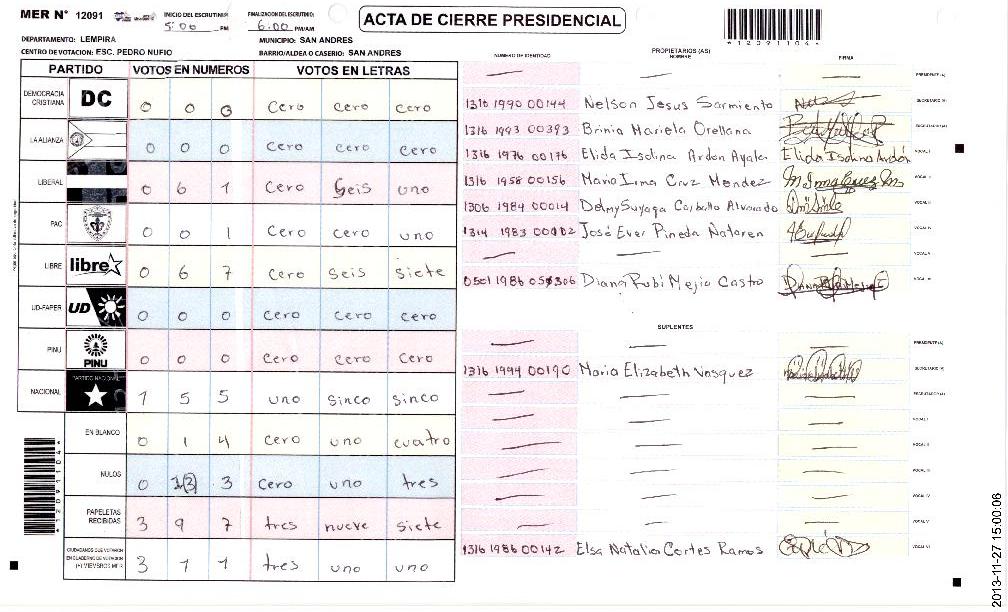 MER N° 12091 INICIO DEL ESCRUTINIO: 5:06 PM FINALIZACION DEL ESCRUTINIO: 6:00 PM/AM ACTA DE CIERRE PRESIDENCIAL
*12091104*
DEPARTAMENTO: LEMPIRA MUNICIPIO: SAN ANDRES
CENTRO DE VOTACION: ESC. PEDRO NUFIO BARRIO/ALDEA O CASERIO: SAN ANDRES
PARTIDO VOTOS EN NUMEROS VOTOS EN LETRAS
DEMOCRACIA CRISTIANA DC 0 0 0 Cero cero cero
LA ALIANZA 0 0 0 Cero cero cero
LIBERAL 0 6 1 Cero Seis uno
PAC 0 0 1 Cero Cero uno
LIBRE libre 0 6 7 Cero seis siete
UD-FAPER UD 0 0 0 Cero Cero cero
PINU PINU 0 0 0 Cero Cero Cero
NACIONAL PARTIDO NACIONAL 1 5 5 uno sinco sinco
EN BLANCO 0 1 4 Cero uno cuatro
NULOS 0 3 Cero uno tres
PAPELETAS RECIBIDAS 3 9 7 tres nueve siete
CIUDADANOS QUE VOTARON EN CUADERNO DE VOTACION (+) MIEMBROS MER 3 1 1 tres uno uno
*12091104*
NUMERO DE IDENTIDAD PROPIETARIOS (AS) NOMBRE FIRMA
PRESIDENTE (A)
1316 1990 00144 Nelson Jesus Sarmiento SECRETARIO (A)
1316 1993 00393 Brinia Mariela Orellana ESCRUTADOR (A)
1316 1976 00176 Elida Isolina Ardon Ayala Elida Isolina Ardón VOCAL I
1316 1958 00156 Maria Irma Cruz Mendez VOCAL II
1306 1984 00014 Delmy Suyapa Carballo Alvarado VOCAL III
1314 1983 José Ever Pineda Nataren VOCAL IV
VOCAL V
0501 1986 Diana Rubi Mejia Castro VOCAL VI
SUPLENTES
PRESIDENTE (A)
1316 1994 00190 Maria Elizabeth Vasquez SECRETARIO (A)
ESCRUTADOR (A)
VOCAL I
VOCAL II
VOCAL III
VOCAL IV
VOCAL V
1316 1986 00142 Elsa Natalia Cortes Ramos VOCAL VI
2013-11-27 15:00:06